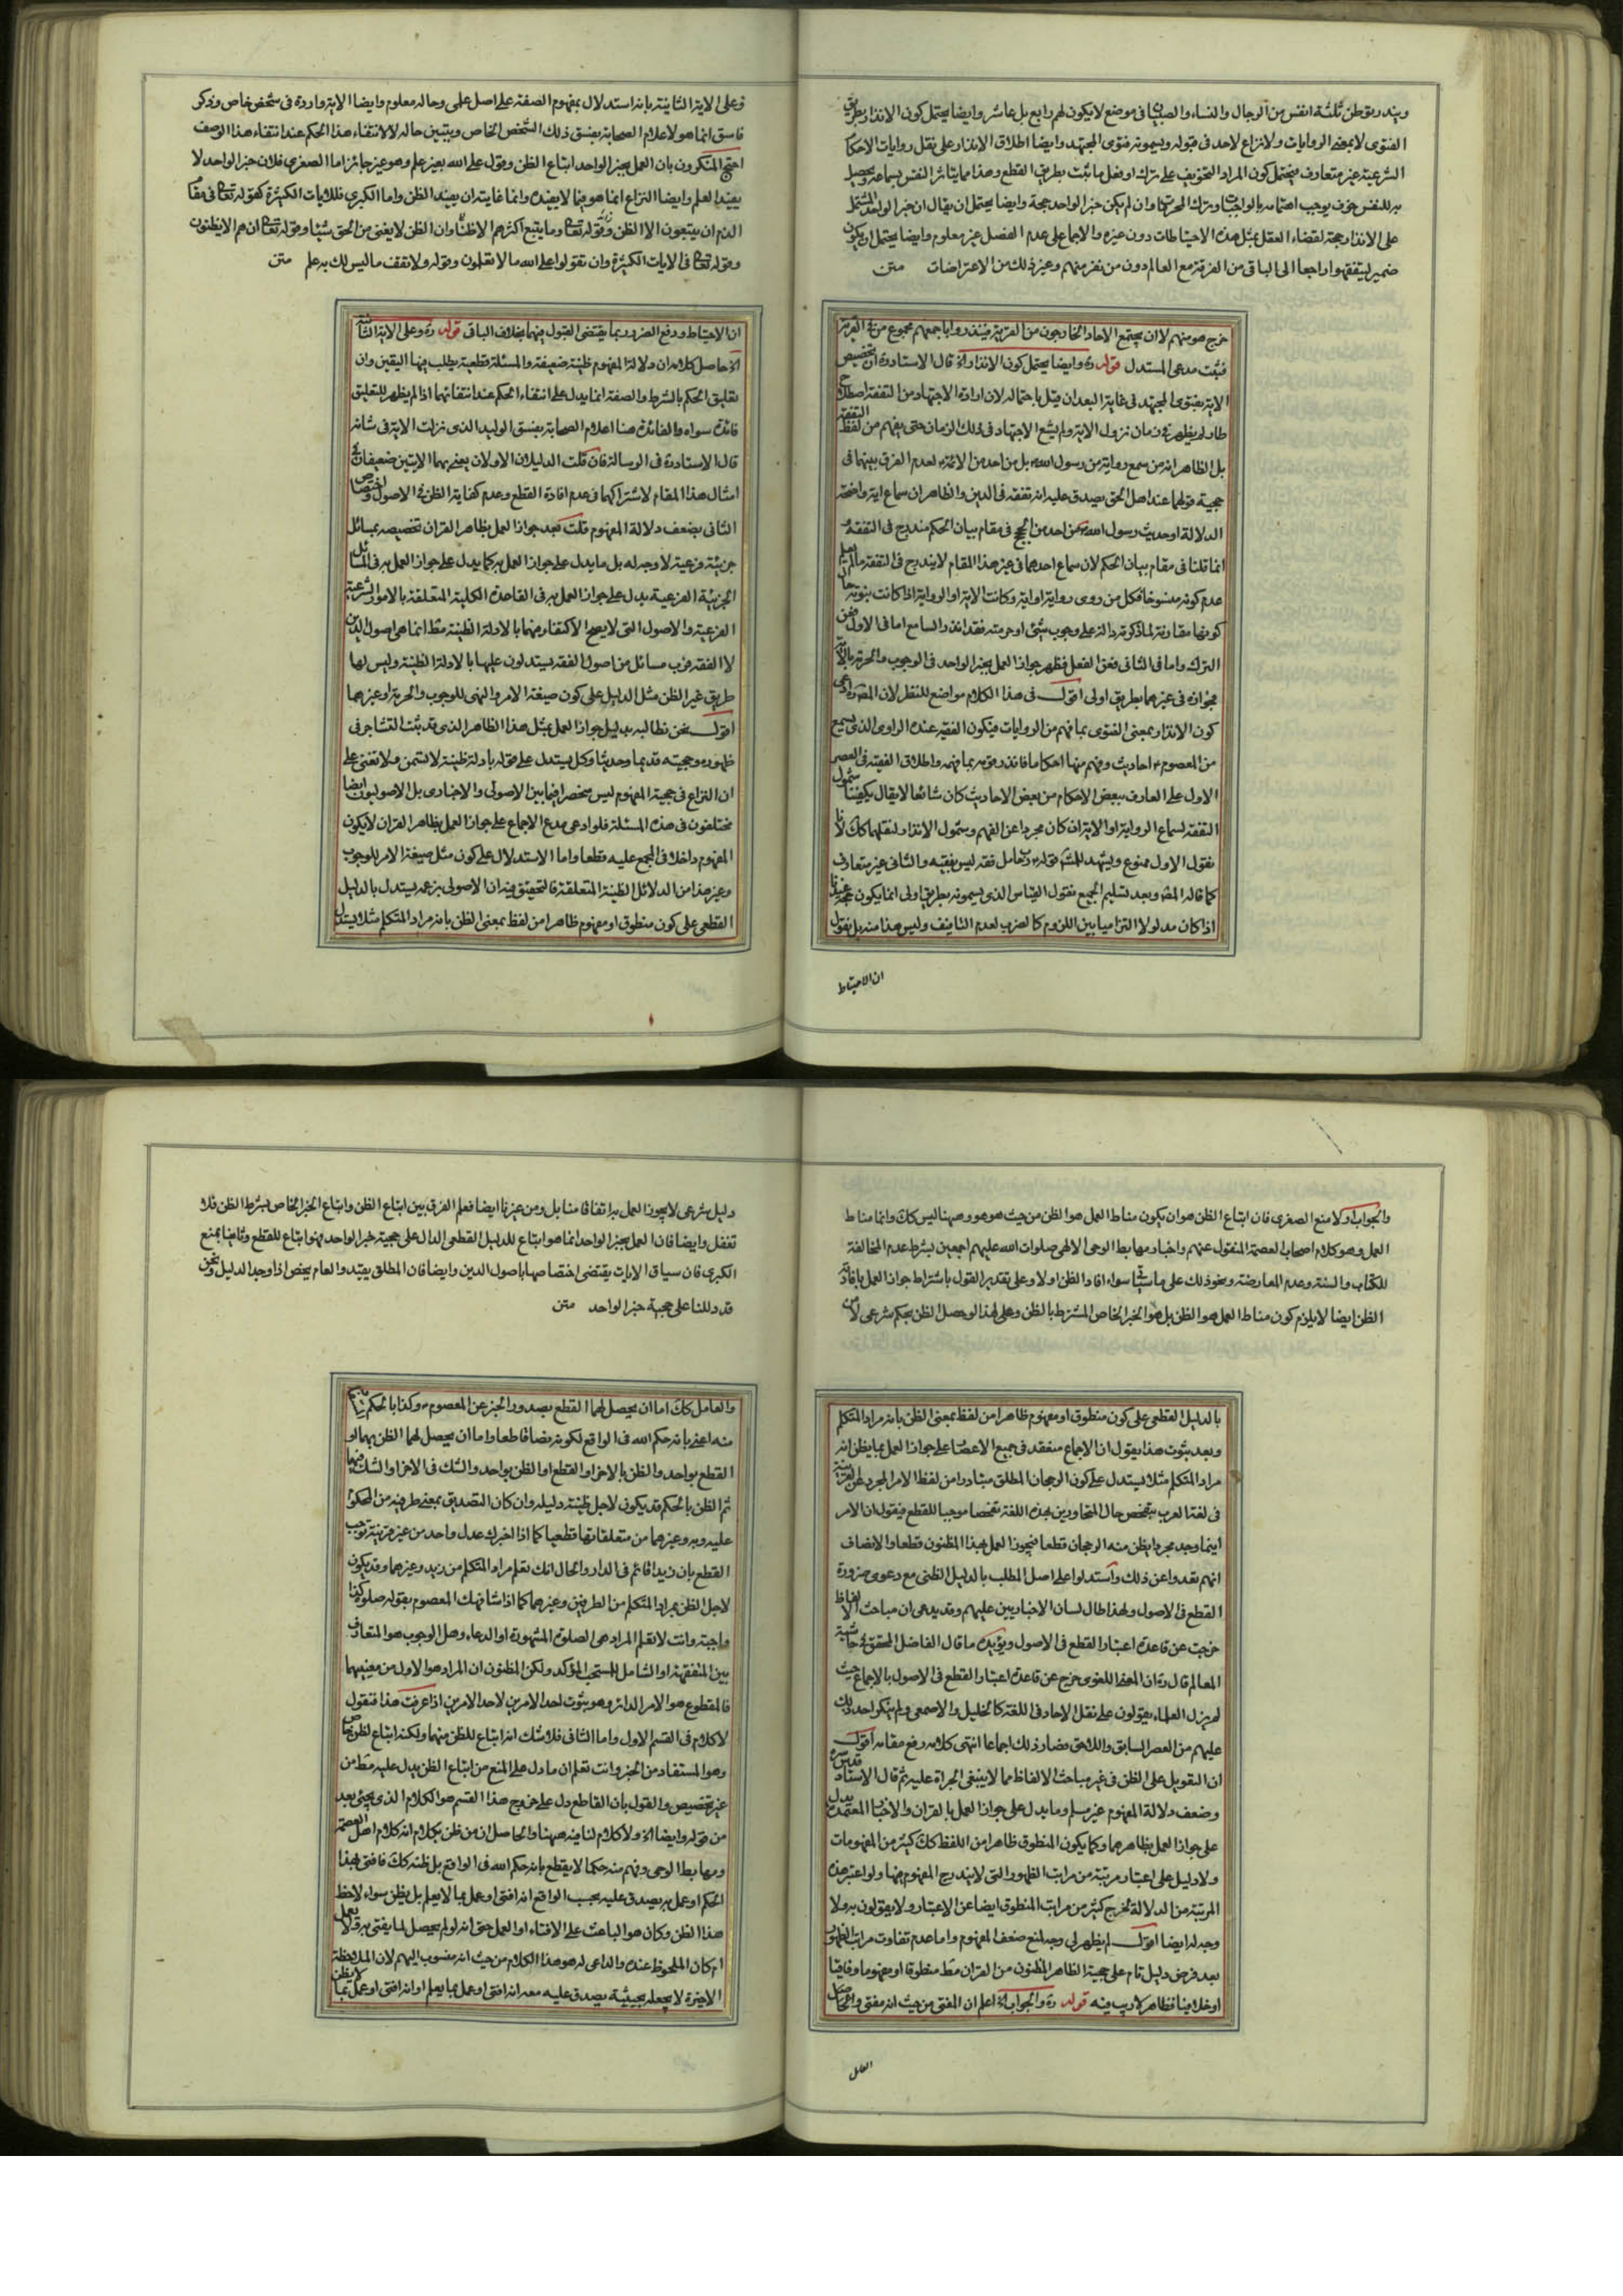 ويندر توطن ثلثة انفس من الرجال والنساء والصبيان في موضع لا يكون لهم رابع بل عاشر وايضا يحتمل كون الانذار بطريق
الفتوى لا بمحض الروايات ولا نزاع لاحد في قبوله ويسمونه فتوى المجتهد وايضا اطلاق الانذار على نقل روايات الاحكام
الشرعية غير متعارف فيحتمل كون المراد التخويف على ترك او فعل ما ثبت بطريق القطع وهذا مما يتاثر النفس بسماعه ويحصل
به للنفس خوف يوجب اهتمامه بالواجبات وترك المحرمات وان لم يكن خبر الواحد حجة وايضا يحتمل ان يقال ان خبر الواحد المشتمل
على الانذار حجة لقضاء العقل بمثل هذه الاحتياطات دون غيره والاجماع على عدم الفصل غير معلوم وايضا يحتمل ان يكون
ضمير ليتفقهوا راجعا الى الباقي من الفرقة مع العالم دون من نفر منهم وغير ذلك من الاعتراضات متن
خرج هو منهم لا ان يجتمع الاحاد الخارجون من القرية فينذروا باجمعهم مجموع من في القرية
فيثبت مدعى المستدل قوله ره وايضا يحتمل كون الانذار اه قال الاستاد ره ان تخصيص
الاية بفتوى المجتهد في غاية البعد ان قيل باحتماله لان ارادة الاجتهاد من التفقه اصطلاح
طار لم يظهر في زمان نزول الاية ولم يشع الاجتهاد في ذلك الزمان حتى يفهم من لفظ التفقه
بل الظاهر انه من سمع رواية من رسول الله بل من احد من الائمة لعدم الفرق بينهما في
حجية قولهما عند اهل الحق يصدق عليه انه تفقه في الدين والظاهر ان سماع اية واضحة
الدلالة او حديث رسول الله من احد من الحجج في مقام بيان الحكم مندرج في التفقه
انما قلنا في مقام بيان الحكم لان سماع احدهما في غير هذا المقام لا يندرج في التفقه ما لم يعلم
عدم كونه منسوخا فكل من روى رواية او اية وكانت الاية او الرواية اذا كانت بنوته حال
كونها مقارنة لما ذكرته دالة على وجوب شئ او حرمته فقد انذر السامع اما في الاول فعن
الترك واما في الثاني فعن الفعل فظهر جواز العمل بخبر الواحد في الوجوب والحرمة بالاية
فجوازه في غيرهما بطريق اولى اقول في هذا الكلام مواضع للنظر لان المصره ادعى
كون الانذار بمعنى الفتوى بما فهم من الروايات فيكون الفقيه عنده الراوى الذي يسمع
من المعصوم احاديث وفهم منها احكاما فانذر قومه بما فهمه واطلاق الفقيه في العصر
الاول على العارف ببعض الاحكام من بعض الاحاديث كان شائعا لا يقال يكفينا شمول
التفقه لسماع الرواية او الاية ان كان مجردا عن الفهم وشمول الانذار لنقلهما كك لانا
نقول الاول ممنوع ويشهد للمنع قوله رب حامل فقه ليس بفقيه والثاني غير متعارف
كما قاله المصه وبعد تسليم الجميع نقول القياس الذي يسمونه بطريق اولى انما يكون حجة عندنا
اذا كان مدلولا التزاميا بين اللزوم كالضرب لعدم التافيف وليس هذا منه بل نقول
ان الاحتياط
وعلى الاية الثانية بانه استدلال بمفهوم الصفة على اصل علمى وحاله معلوم وايضا الاية واردة في شخص خاص وذكر
فاسق انما هو لاعلام الصحابة بفسق ذلك الشخص الخاص ويتبين حاله لا لانتفاء هذا الحكم عند انتفاء هذا الوصف
احتج المنكرون بان العمل بخبر الواحد اتباع الظن وقول على الله بغير علم وهو غير جائز اما الصغرى فلان خبر الواحد لا
يفيد العلم وايضا النزاع انما هو فيما لا يفيده وانما غايته ان يفيد الظن واما الكبرى فللايات الكثيرة كقوله تعالى في مقام
الذم ان يتبعون الا الظن وقوله تعالى وما يتبع اكثرهم الا ظنا وان الظن لا يغنى من الحق شيئا وقوله تعالى ان هم الا يظنون
وقوله تعالى في الايات الكثيرة وان تقولوا على الله ما لا تعلمون وقوله ولا تقف ما ليس لك به علم متن
ان الاحتياط ودفع الضرر ربما يقتضى القبول فيهما بخلاف الباقي قوله ره وعلى الاية الثانية
اه حاصل كلامه ان دلالة المفهوم ظنية ضعيفة والمسئلة قطعية يطلب فيها اليقين وان
تعليق الحكم بالشرط والصفة انما يدل على انتفاء الحكم عند انتفائهما اذا لم يظهر للتعليق
فائدة سواه والفائدة هنا اعلام الصحابة بفسق الوليد الذي نزلت الاية في شانه
قال الاستاد ره في الرسالة فان قلت الدليلان الاولان يعنى بهما الايتين ضعيفان في
امثال هذا المقام لاشتراكهما في عدم افادة القطع وعدم كفاية الظن في الاصول واختصاص
الثاني بضعف دلالة المفهوم قلت بعد جواز العمل بظاهر القران تخصيصه بمسائل
جزئية فرعية لا وجه له بل ما يدل على جواز العمل به كما يدل على جواز العمل به في المسائل
الجزئية الفرعية يدل على جواز العمل به في القاعدة الكلية المتعلقة بالامور الشرعية
الفرعية والاصول التي لا يصح الاكتفاء فيها بالادلة الظنية فقط انما هي اصول الدين
لا الفقه فرب مسائل من اصول الفقه يستدلون عليها بالادلة الظنية وليس لها
طريق غير الظن مثل الدليل على كون صيغة الامر والنهى للوجوب والحرمة او غيرهما
اقول نحن نطالبه بدليل جواز العمل بمثل هذا الظاهر الذي قد ثبت التشاجر في
ظهوره وحجيته قديما وحديثا وكل يستدل على قوله بادلة ظنية لا تسمن ولا تغنى على
ان النزاع في حجية المفهوم ليس منحصرا فيما بين الاصولى والاخبارى بل الاصوليون ايضا
مختلفون في هذه المسئلة فلو ادعى مدع الاجماع على جواز العمل بظاهر القران لا يكون
المفهوم داخلا في المجمع عليه قطعا واما الاستدلال على كون مثل صيغة الامر للوجوب
وغير هذا من الدلائل الظنية المتعلقة فالتحقيق فيه ان الاصولى بزعمه يستدل بالدليل
القطعى على كون منطوق او مفهوم ظاهرا من لفظ بمعنى الظن بانه مراد المتكلم مثلا يستدل
والجواب اولا منع الصغرى فان اتباع الظن هو ان يكون مناط العمل هو الظن من حيث هو هو وههنا ليس كك وانما مناط
العمل هو كلام اصحاب العصمة المنقول عنهم واخبار مهابط الوحى الالهى صلوات الله عليهم اجمعين بشرط عدم المخالفة
للكتاب والسنة وعدم المعارضة ونحو ذلك على ما سيأتى سواء افاد الظن او لا وعلى تقدير القول باشتراط جواز العمل بافادة
الظن ايضا لا يلزم كون مناط العمل هو الظن بل هو الخبر الخاص المشترط بالظن وعلى هذا لو حصل الظن بحكم شرعى لا من
بالدليل القطعى على كون منطوق او مفهوم ظاهرا من لفظ بمعنى الظن بانه مراد المتكلم
وبعد ثبوت هذا يقول ان الاجماع منعقد في جميع الاعصار على جواز العمل بما يظن انه
مراد المتكلم مثلا يستدل على كون الوجحان المطلق متبادرا من لفظ الامر المجرد عن القرينة
في لغة العرب بتفحص حال المتحاورين بهذه اللغة تفحصا موجبا للقطع فيقول ان الامر
اينما وجد مجردا يظن منه الرجحان قطعا فيجوز العمل بهذا المظنون قطعا والانصاف
انهم تعدوا عن ذلك واستدلوا على اصل المطلب بالدليل الظنى مع دعوى ضرورة
القطع في الاصول ولهذا طال لسان الاخباريين عليهم وقد يدعى ان مباحث الالفاظ
خرجت عن قاعدة اعتبار القطع في الاصول ويؤيده ما قال الفاضل المحقق في حاشية
المعالم قال ره ان المعنى اللغوى خرج عن قاعدة اعتبار القطع في الاصول بالاجماع حيث
لم يزل العلماء يعولون على نقل الاحاد في اللغة كالخليل والاصمعى ولم ينكر احد ذلك
عليهم من العصر السابق واللاحق فصار ذلك اجماعا انتهى كلامه رفع مقامه اقول
ان التعويل على الظن في غير مباحث الالفاظ مما لا ينبغي الجراة عليه ثم قال الاستاد قدس سره
وضعف دلالة المفهوم غير مسلم وما يدل على جواز العمل بالقران والاخبار المعتمدة يدل
على جواز العمل بظاهرهما وكما يكون المنطوق ظاهرا من اللفظ كك كثير من المفهومات
ولا دليل على اعتبار مرتبة من مراتب الظهور التي لا يندرج المفهوم فيها ولو اعتبر هذه
المرتبة من الدلالة لخرج كثير من مراتب المنطوق ايضا عن الاعتبار ولا يعولون به ولا
وجه له ايضا اقول لم يظهر لى وجه لمنع ضعف المفهوم واما عدم تفاوت مراتب الظهور
بعد فرض دليل تام على حجية الظاهر المظنون من القران فقط منطوقا او مفهوما وفاقيا
او خلافيا فظاهر لا ريب فيه قوله ره والجواب اه اعلم ان المفتى من حيث انه مفتى والحاصل
العامل
دليل شرعى لا يجوز العمل به اتفاقا منا بل ومن غيرنا ايضا فعلم الفرق بين اتباع الظن واتباع الخبر الخاص بشرط الظن فلا
تغفل وايضا فان العمل بخبر الواحد انما هو اتباع للدليل القطعى الدال على حجية خبر الواحد فهو اتباع للقطع وثانيا بمنع
الكبرى فان سياق الايات يقتضى اختصاصها باصول الدين وايضا فان المطلق يقيد والعام يخص اذا وجد الدليل ونحن
قد دللنا على حجية خبر الواحد متن
والعامل كك اما ان يحصل لهما القطع بصدور الخبر عن المعصوم وكذا بالحكم
منه اعنى بانه حكم الله في الواقع لكونه نصا قاطعا واما ان يحصل لهما الظن بهما او
القطع بواحد والظن بالاخر او القطع او الظن بواحد والشك في الاخر او الشك فيهما
ثم الظن بالحكم قد يكون لاجل ظنية دليله وان كان التصديق بمعنى طرفيه من المحكوم
عليه وبه وغيرهما من متعلقاتها قطعيا كما اذا اخبرك عدل واحد من غير قرينة توجب
القطع بان زيدا قائم في الدار والحال انك تعلم مراد المتكلم من زيد وغيرهما وقد يكون
لاجل الظن بمراد المتكلم من الطرفين وغيرهما كما اذا شافهك المعصوم بقوله صلوة كذا
واجبة وانت لا تعلم المراد هي الصلوة المشهورة او الدعاء وهل الوجوب هو المتعارف
بين المتفقهة او الشامل للمستحب المؤكد ولكن المظنون ان المراد هو الاول من معنييهما
فالمقطوع هو الامر الدائر وهو ثبوت احد الامرين لاحد الامرين اذا عرفت هذا فنقول
لا كلام في القسم الاول واما الثاني فلا شك انه اتباع للظن فيهما ولكنه اتباع لظن خاص
وهو المستفاد من الخبر وانت تعلم ان ما دل على المنع من اتباع الظن يدل عليه فقط من
غير تخصيص والقول بان القاطع دل على خروج هذا القسم هو الكلام الذي يجئ بعد
من قوله وايضا اه ولا كلام لنا فيه ههنا والحاصل ان من ظن بكلام انه كلام اهل العصمة
ومهابط الوحى وفهم منه حكما لا يقطع بانه حكم الله في الواقع بل ظنه كك فافتى بهذا
الحكم او عمل به يصدق عليه بحسب الواقع انه افتى او عمل بما لا يعلم بل يظن سواء لاحظ
هذا الظن وكان هو الباعث على الافتاء او العمل حتى انه لو لم يحصل لما يفتى به ولا يعمل
ام كان الملحوظ عنده والداعى له هو هذا الكلام من حيث انه منسوب اليهم لان الملاحظة
الاخيرة لا يجعله بحيثية يصدق عليه معه انه افتى او عمل بما يعلم او انه افتى او عمل بما لا يظن